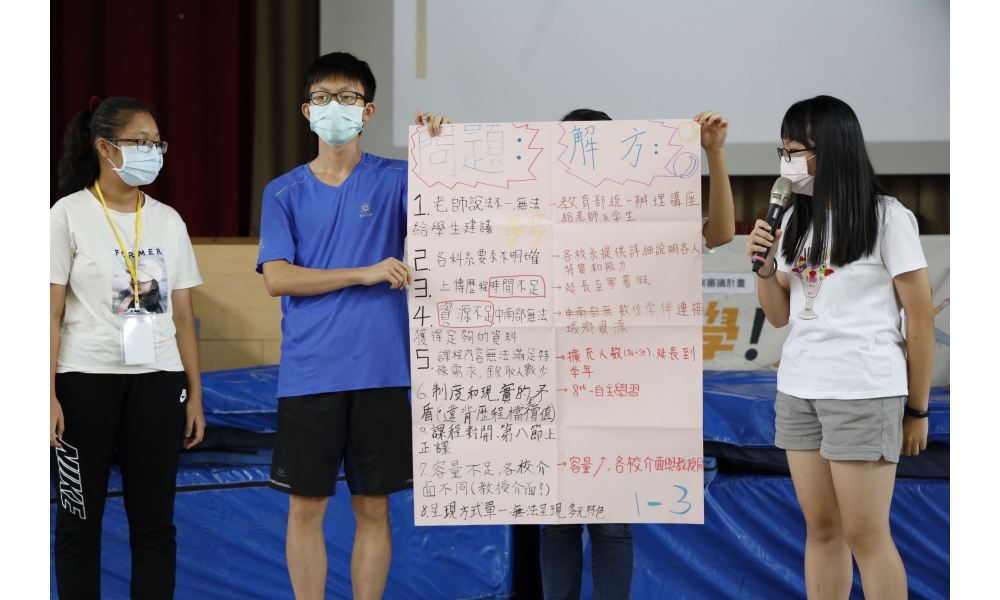 問題：
解方：
1. 老師說法不一,無法
給學生建議
→教育部統一辦理講座
給老師&學生
2. 各科系要求不明確
→各校系提供詳細說明各人
特質和能力
3. 上傳歷程時間不足
→延長至寒暑假
4. 資源不足中南部無法
獲得足夠的資料
→中南部無數位學伴連接
城鄉資源
5. 課程內容無法滿足特
殊需求,錄取人數少
→擴充人數 延長到
學年
6. 制度和現實的矛
盾(違背歷程檔價值)
→8th→自主學習
課程對開,第八節上
正課
7. 容量不足,各校介
面不同(教授介面?)
→容量↑,各校介面與教授
8. 呈現方式單一,無法呈現多元特色
1-3
學!
審議計畫
FORMER
NIKE